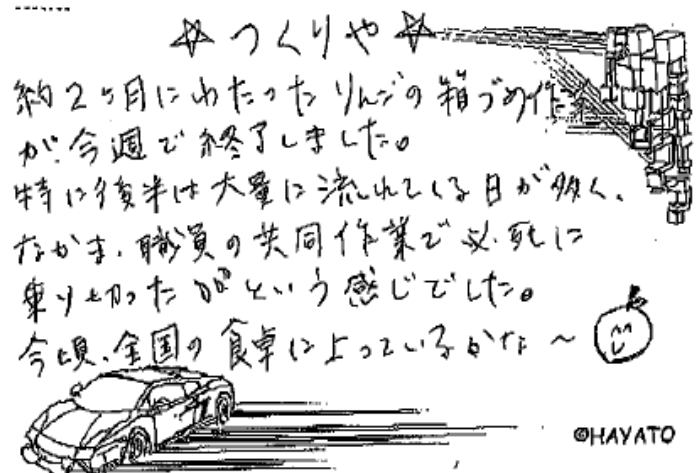 ☆つくりや☆
約2ヶ月にわたったりんごの箱づめ作業
が今週で終了しました。
特に後半は大量に流れてくる日が多く、
なかま・職員の共同作業で必死に
乗り切ったがという感じでした。
今頃、全国の食卓に上っているかな〜
©HAYATO